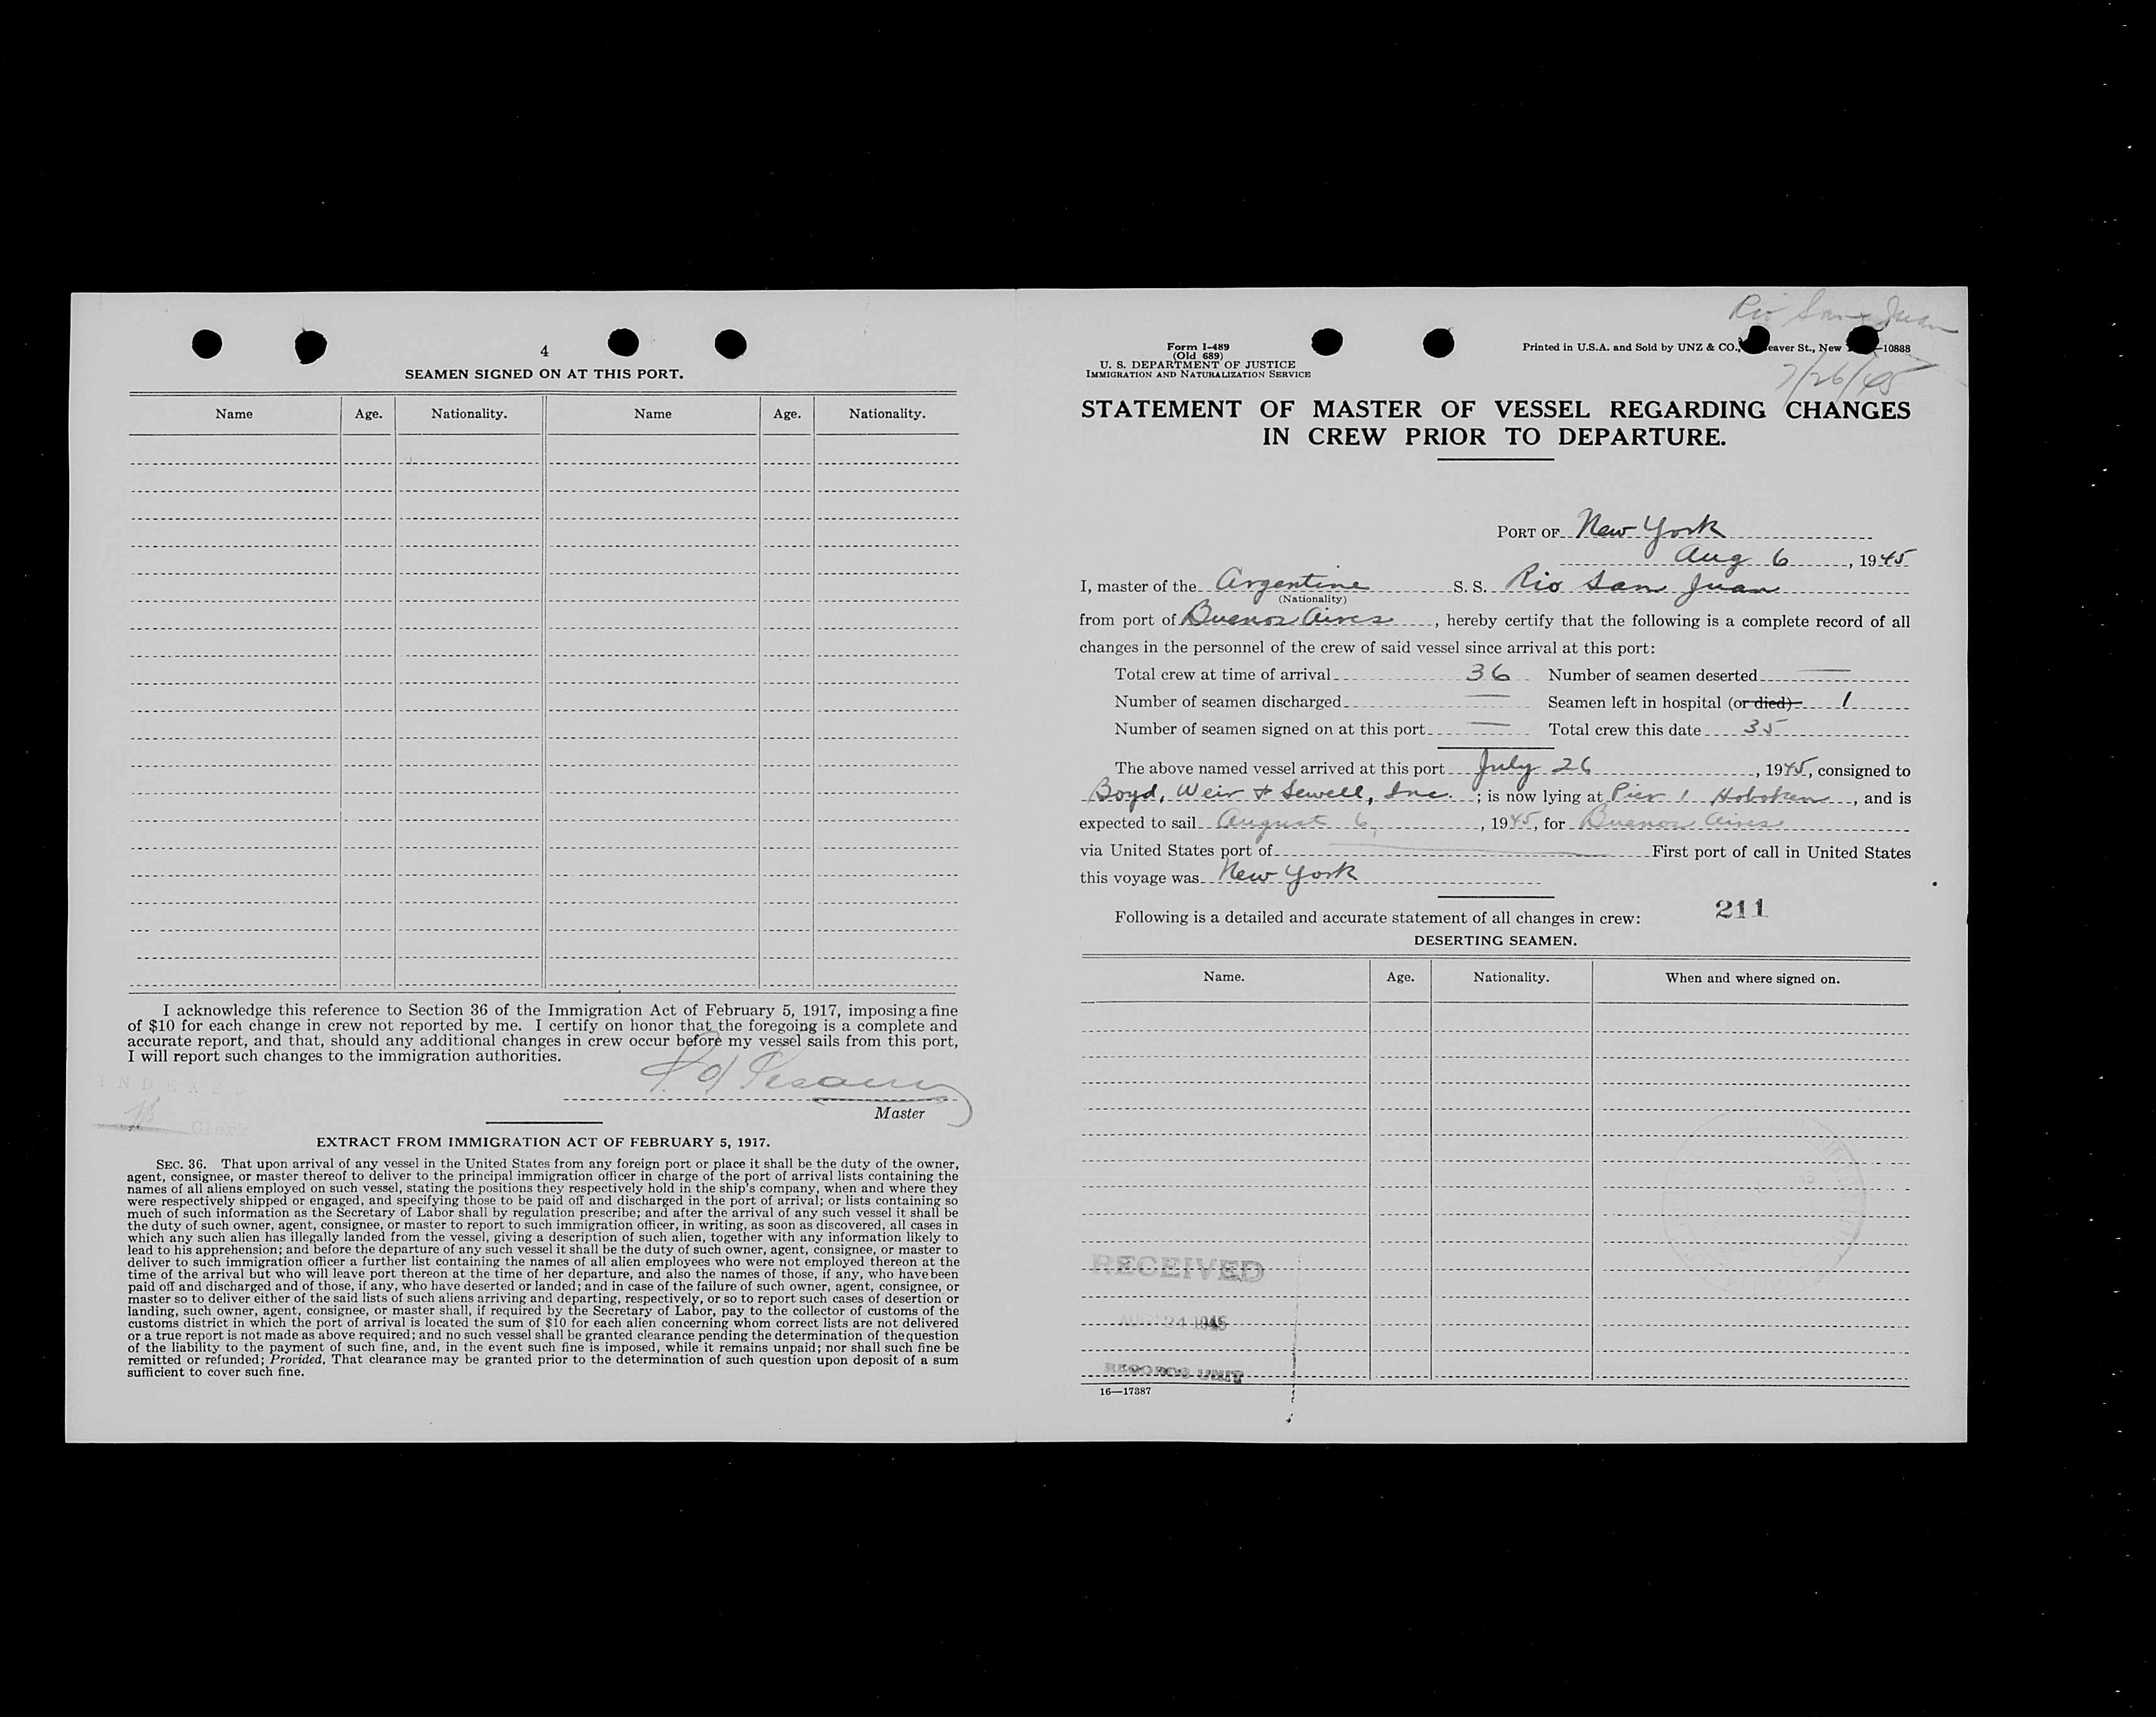 4
SEAMEN SIGNED ON AT THIS PORT.
Name Age. Nationality. Name Age. Nationality.
I acknowledge this reference to Section 36 of the Immigration Act of February 5, 1917, imposing a fine
of $10 for each change in crew not reported by me. I certify on honor that the foregoing is a complete and
accurate report, and that, should any additional changes in crew occur before my vessel sails from this port,
I will report such changes to the immigration authorities.
INDEXED
Clerk
Master
EXTRACT FROM IMMIGRATION ACT OF FEBRUARY 5, 1917.
SEC. 36. That upon arrival of any vessel in the United States from any foreign port or place it shall be the duty of the owner,
agent, consignee, or master thereof to deliver to the principal immigration officer in charge of the port of arrival lists containing the
names of all aliens employed on such vessel, stating the positions they respectively hold in the ship's company, when and where they
were respectively shipped or engaged, and specifying those to be paid off and discharged in the port of arrival; or lists containing so
much of such information as the Secretary of Labor shall by regulation prescribe; and after the arrival of any such vessel it shall be
the duty of such owner, agent, consignee, or master to report to such immigration officer, in writing, as soon as discovered, all cases in
which any such alien has illegally landed from the vessel, giving a description of such alien, together with any information likely to
lead to his apprehension; and before the departure of any such vessel it shall be the duty of such owner, agent, consignee, or master to
deliver to such immigration officer a further list containing the names of all alien employees who were not employed thereon at the
time of the arrival but who will leave port thereon at the time of her departure, and also the names of those, if any, who have been
paid off and discharged and of those, if any, who have deserted or landed; and in case of the failure of such owner, agent, consignee, or
master so to deliver either of the said lists of such aliens arriving and departing, respectively, or so to report such cases of desertion or
landing, such owner, agent, consignee, or master shall, if required by the Secretary of Labor, pay to the collector of customs of the
customs district in which the port of arrival is located the sum of $10 for each alien concerning whom correct lists are not delivered
or a true report is not made as above required; and no such vessel shall be granted clearance pending the determination of the question
of the liability to the payment of such fine, and, in the event such fine is imposed, while it remains unpaid; nor shall such fine be
remitted or refunded; Provided, That clearance may be granted prior to the determination of such question upon deposit of a sum
sufficient to cover such fine.
Rio San Juan
7/26/45
Form I-489
(Old 689)
U. S. DEPARTMENT OF JUSTICE
IMMIGRATION AND NATURALIZATION SERVICE
Printed in U.S.A. and Sold by UNZ & CO., eaver St., New —10888
STATEMENT OF MASTER OF VESSEL REGARDING CHANGES
IN CREW PRIOR TO DEPARTURE.
PORT OF New York
Aug 6, 1945
I, master of the Argentine S. S. Rio San Juan
(Nationality)
from port of Buenos Aires, hereby certify that the following is a complete record of all
changes in the personnel of the crew of said vessel since arrival at this port:
Total crew at time of arrival 36 Number of seamen deserted —
Number of seamen discharged — Seamen left in hospital (or died) 1
Number of seamen signed on at this port — Total crew this date 35
The above named vessel arrived at this port July 26, 1945, consigned to
Boyd, Weir & Sewell, Inc.; is now lying at Pier 1 Hoboken, and is
expected to sail August 6, 1945, for Buenos Aires
via United States port of — First port of call in United States
this voyage was New York
Following is a detailed and accurate statement of all changes in crew: 211
DESERTING SEAMEN.
Name. Age. Nationality. When and where signed on.
RECEIVED
AUG 24 1945
RECORDS UNIT
16—17387